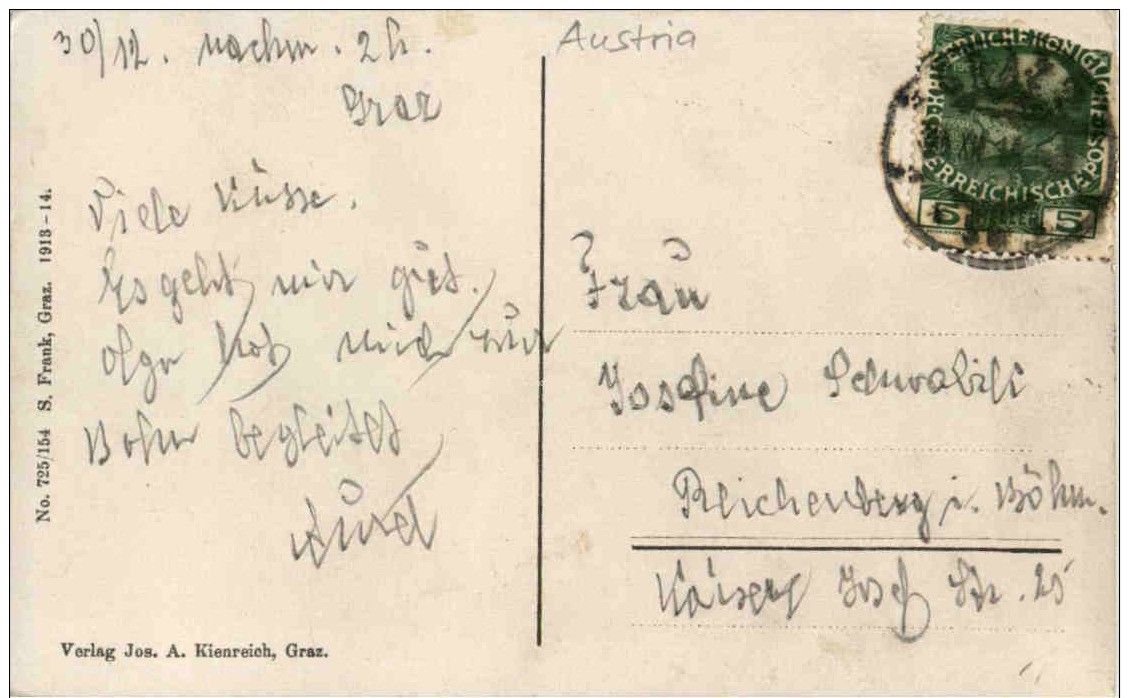 30/12. nachm. 2 h.
Graz
Viele Küsse.
Es geht mir gut.
Olga hat mich zur
Bahn begleitet
Aurel
No. 725/154 S. Frank, Graz. 1913-14.
Verlag Jos. A. Kienreich, Graz.
Austria
KAISERLICHE KÖNIGLICHE
ÖSTERREICHISCHE POST
5 HELLER 5
Frau
Josefine
Reichenberg i. Böhm.
Kaiser Josef Str. 25